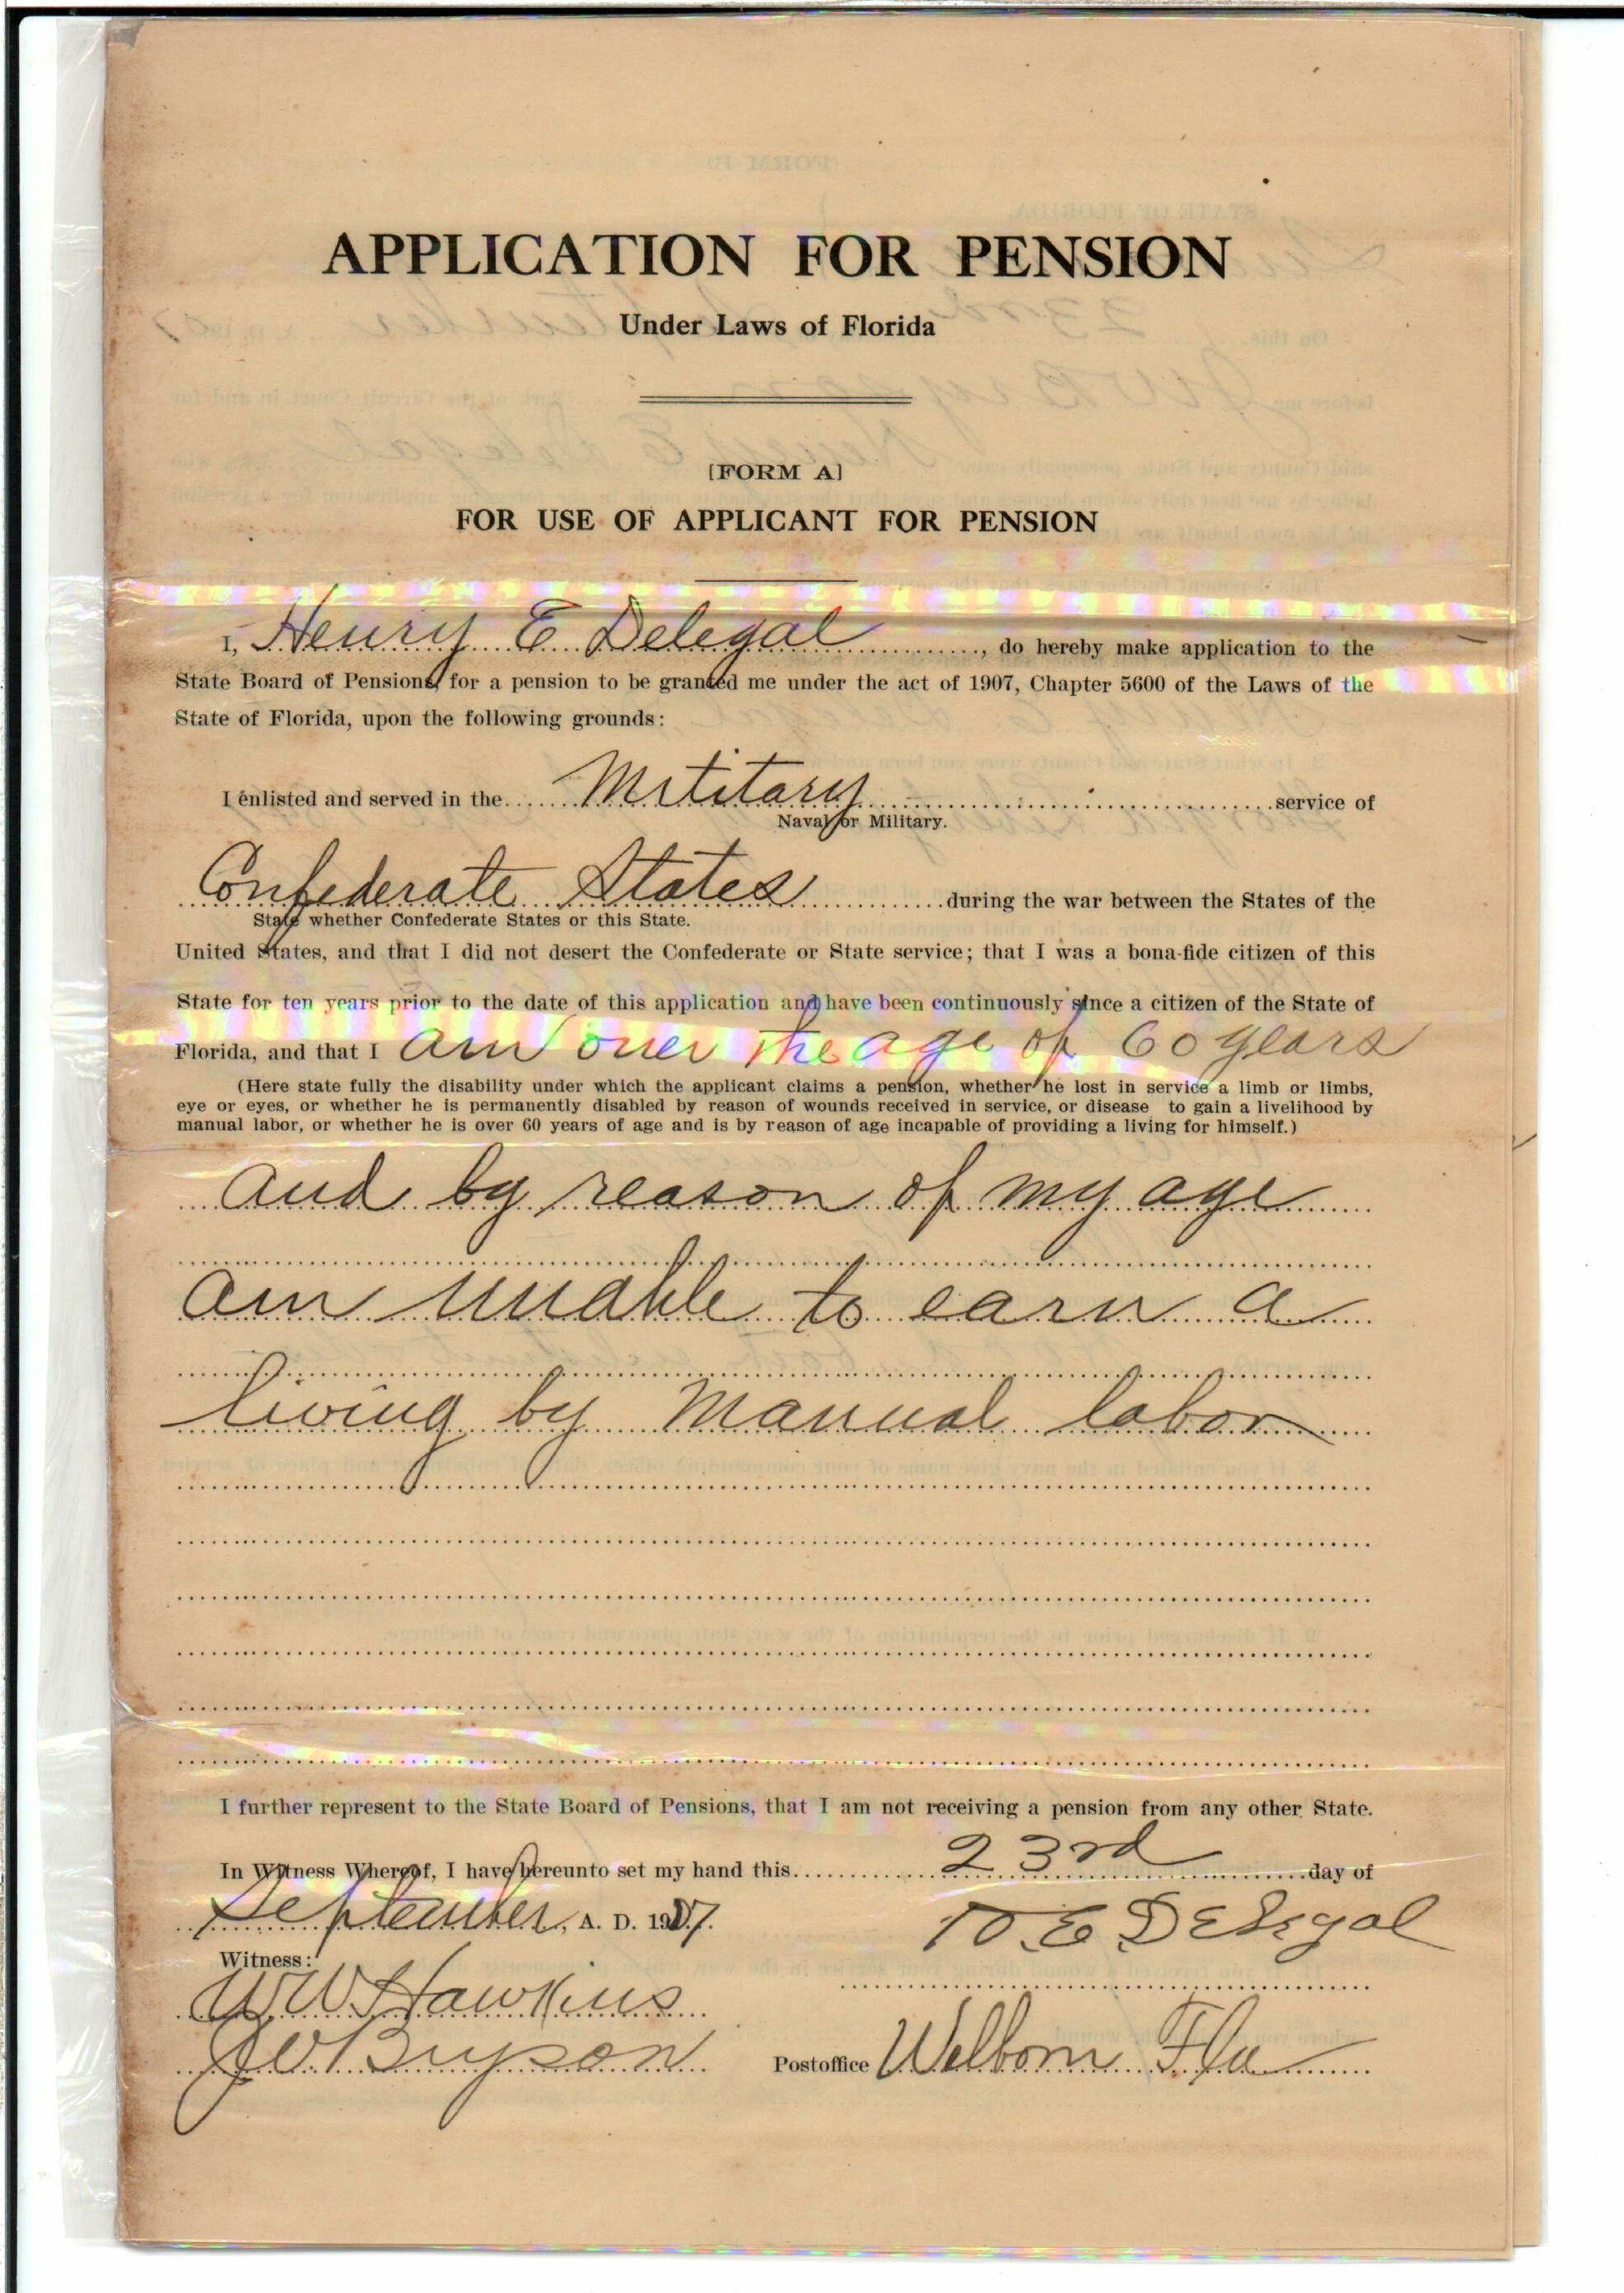 APPLICATION FOR PENSION
Under Laws of Florida
[FORM A]
FOR USE OF APPLICANT FOR PENSION
I, Henry E Delegal, do hereby make application to the
State Board of Pensions, for a pension to be granted me under the act of 1907, Chapter 5600 of the Laws of the
State of Florida, upon the following grounds:
I enlisted and served in the Military service of
Naval or Military.
Confederate States during the war between the States of the
State whether Confederate States or this State.
United States, and that I did not desert the Confederate or State service; that I was a bona-fide citizen of this
State for ten years prior to the date of this application and have been continuously since a citizen of the State of
Florida, and that I am over the age of 60 years
(Here state fully the disability under which the applicant claims a pension, whether he lost in service a limb or limbs,
eye or eyes, or whether he is permanently disabled by reason of wounds received in service, or disease to gain a livelihood by
manual labor, or whether he is over 60 years of age and is by reason of age incapable of providing a living for himself.)
and by reason of my age
am unable to earn a
living by manual labor
I further represent to the State Board of Pensions, that I am not receiving a pension from any other State.
In Witness Whereof, I have hereunto set my hand this 23rd day of
September, A. D. 1907.
H E Delegal
Witness:
W W Hawkins
J W Bryson
Postoffice Welborn Fla